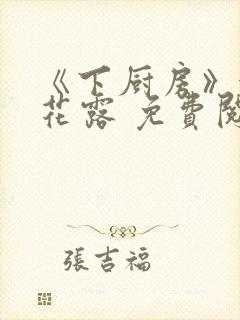 《下厨房》
花露 免費閱
張吉福